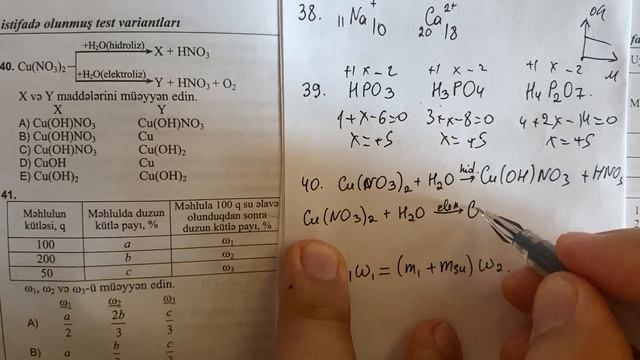 istifadə olunmuş test variantları
+H₂O(hidroliz) X + HNO₃
40. Cu(NO₃)₂
+H₂O(elektroliz) Y + HNO₃ + O₂
X və Y maddələrini müəyyən edin.
X Y
A) Cu(OH)NO₃ Cu(OH)NO₃
B) Cu(OH)NO₃ Cu
C) Cu(OH)NO₃ Cu(OH)₂
D) CuOH Cu
E) Cu(OH)₂ Cu(OH)₂
41.
Məhlulun kütləsi, q Məhlulda duzun kütlə payı, % Məhlula 100 q su əlavə olunduqdan sonra duzun kütlə payı, %
100 a ω₁
200 b ω₂
50 c ω₃
ω₁, ω₂ və ω₃-ü müəyyən edin.
ω₁ ω₂ ω₃
A) a/2 2b/3 c/3
B) a b/3 c/3
38. ₁₁Na⁺₁₀ ₂₀Ca²⁺₁₈
+1 x -2 +1 x -2 +1 x -2
39. HPO3 H3PO4 H4P2O7.
1+x-6=0 3+x-8=0 4+2x-14=0
x=+5 x=+5 x=+5
40. Cu(NO3)2 + H2O hid. → Cu(OH)NO3 + HNO3
Cu(NO3)2 + H2O elek. → C
₁ω₁ = (m₁ + msu) ω₂.